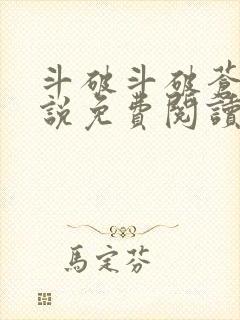 斗破斗破蒼
說免費閱讀
馬定芬